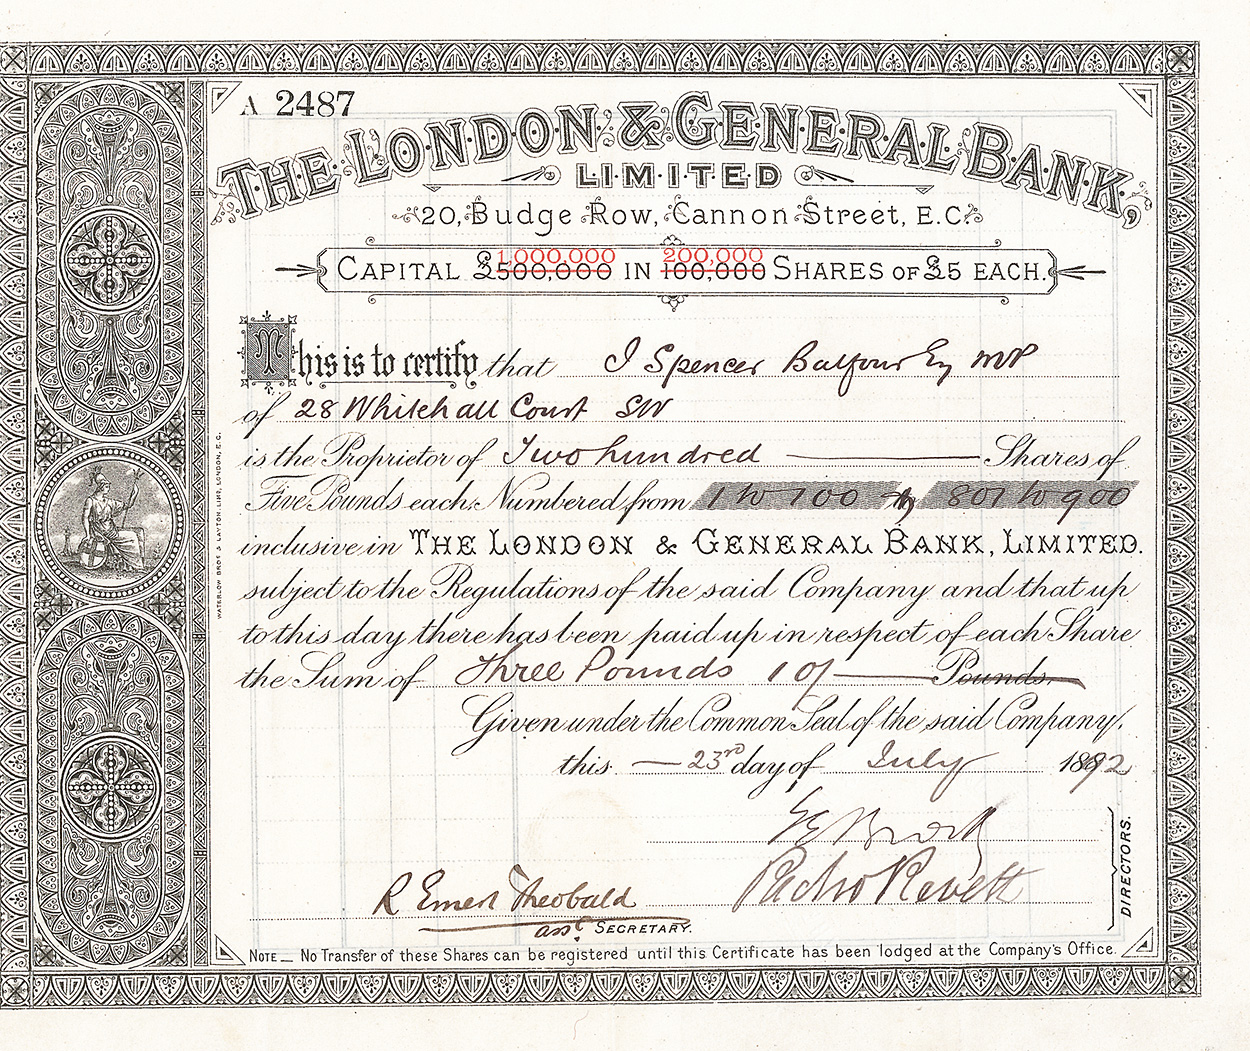 A 2487
THE LONDON & GENERAL BANK,
LIMITED
20, Budge Row, Cannon Street, E.C.
1,000,000 200,000
CAPITAL £500,000 IN 100,000 SHARES OF £5 EACH.
This is to certify that J Spencer Balfour Esq MP
of 28 Whitehall Court SW
is the Proprietor of Two hundred Shares of
Five Pounds each, Numbered from 1 to 100 & 801 to 900
inclusive in THE LONDON & GENERAL BANK, LIMITED.
subject to the Regulations of the said Company and that up
to this day there has been paid up in respect of each Share
the Sum of Three Pounds 10/- Pounds.
Given under the Common Seal of the said Company,
this 23rd day of July 1892
DIRECTORS.
R Ernest Theobald
asst SECRETARY.
NOTE — No Transfer of these Shares can be registered until this Certificate has been lodged at the Company's Office.
WATERLOW BROS & LAYTON, LIMD, LONDON, E.C.